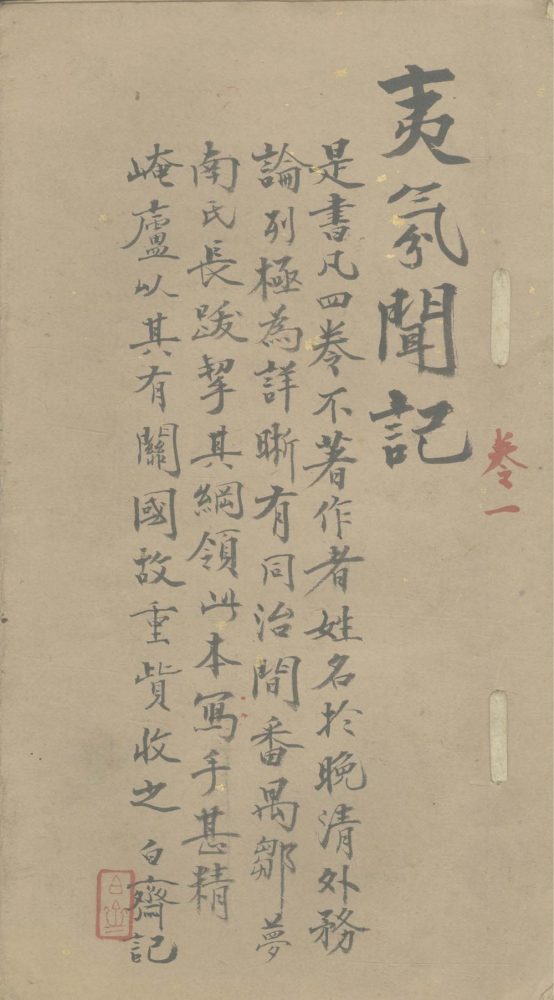 卷一
夷氛聞記
是書凡四卷不著作者姓名於晚清外務
論列極為詳晰有同治間番禺鄒夢
南氏長跋挈其綱領此本寫手甚精
崦廬以其有關國故重貲收之 白齋記